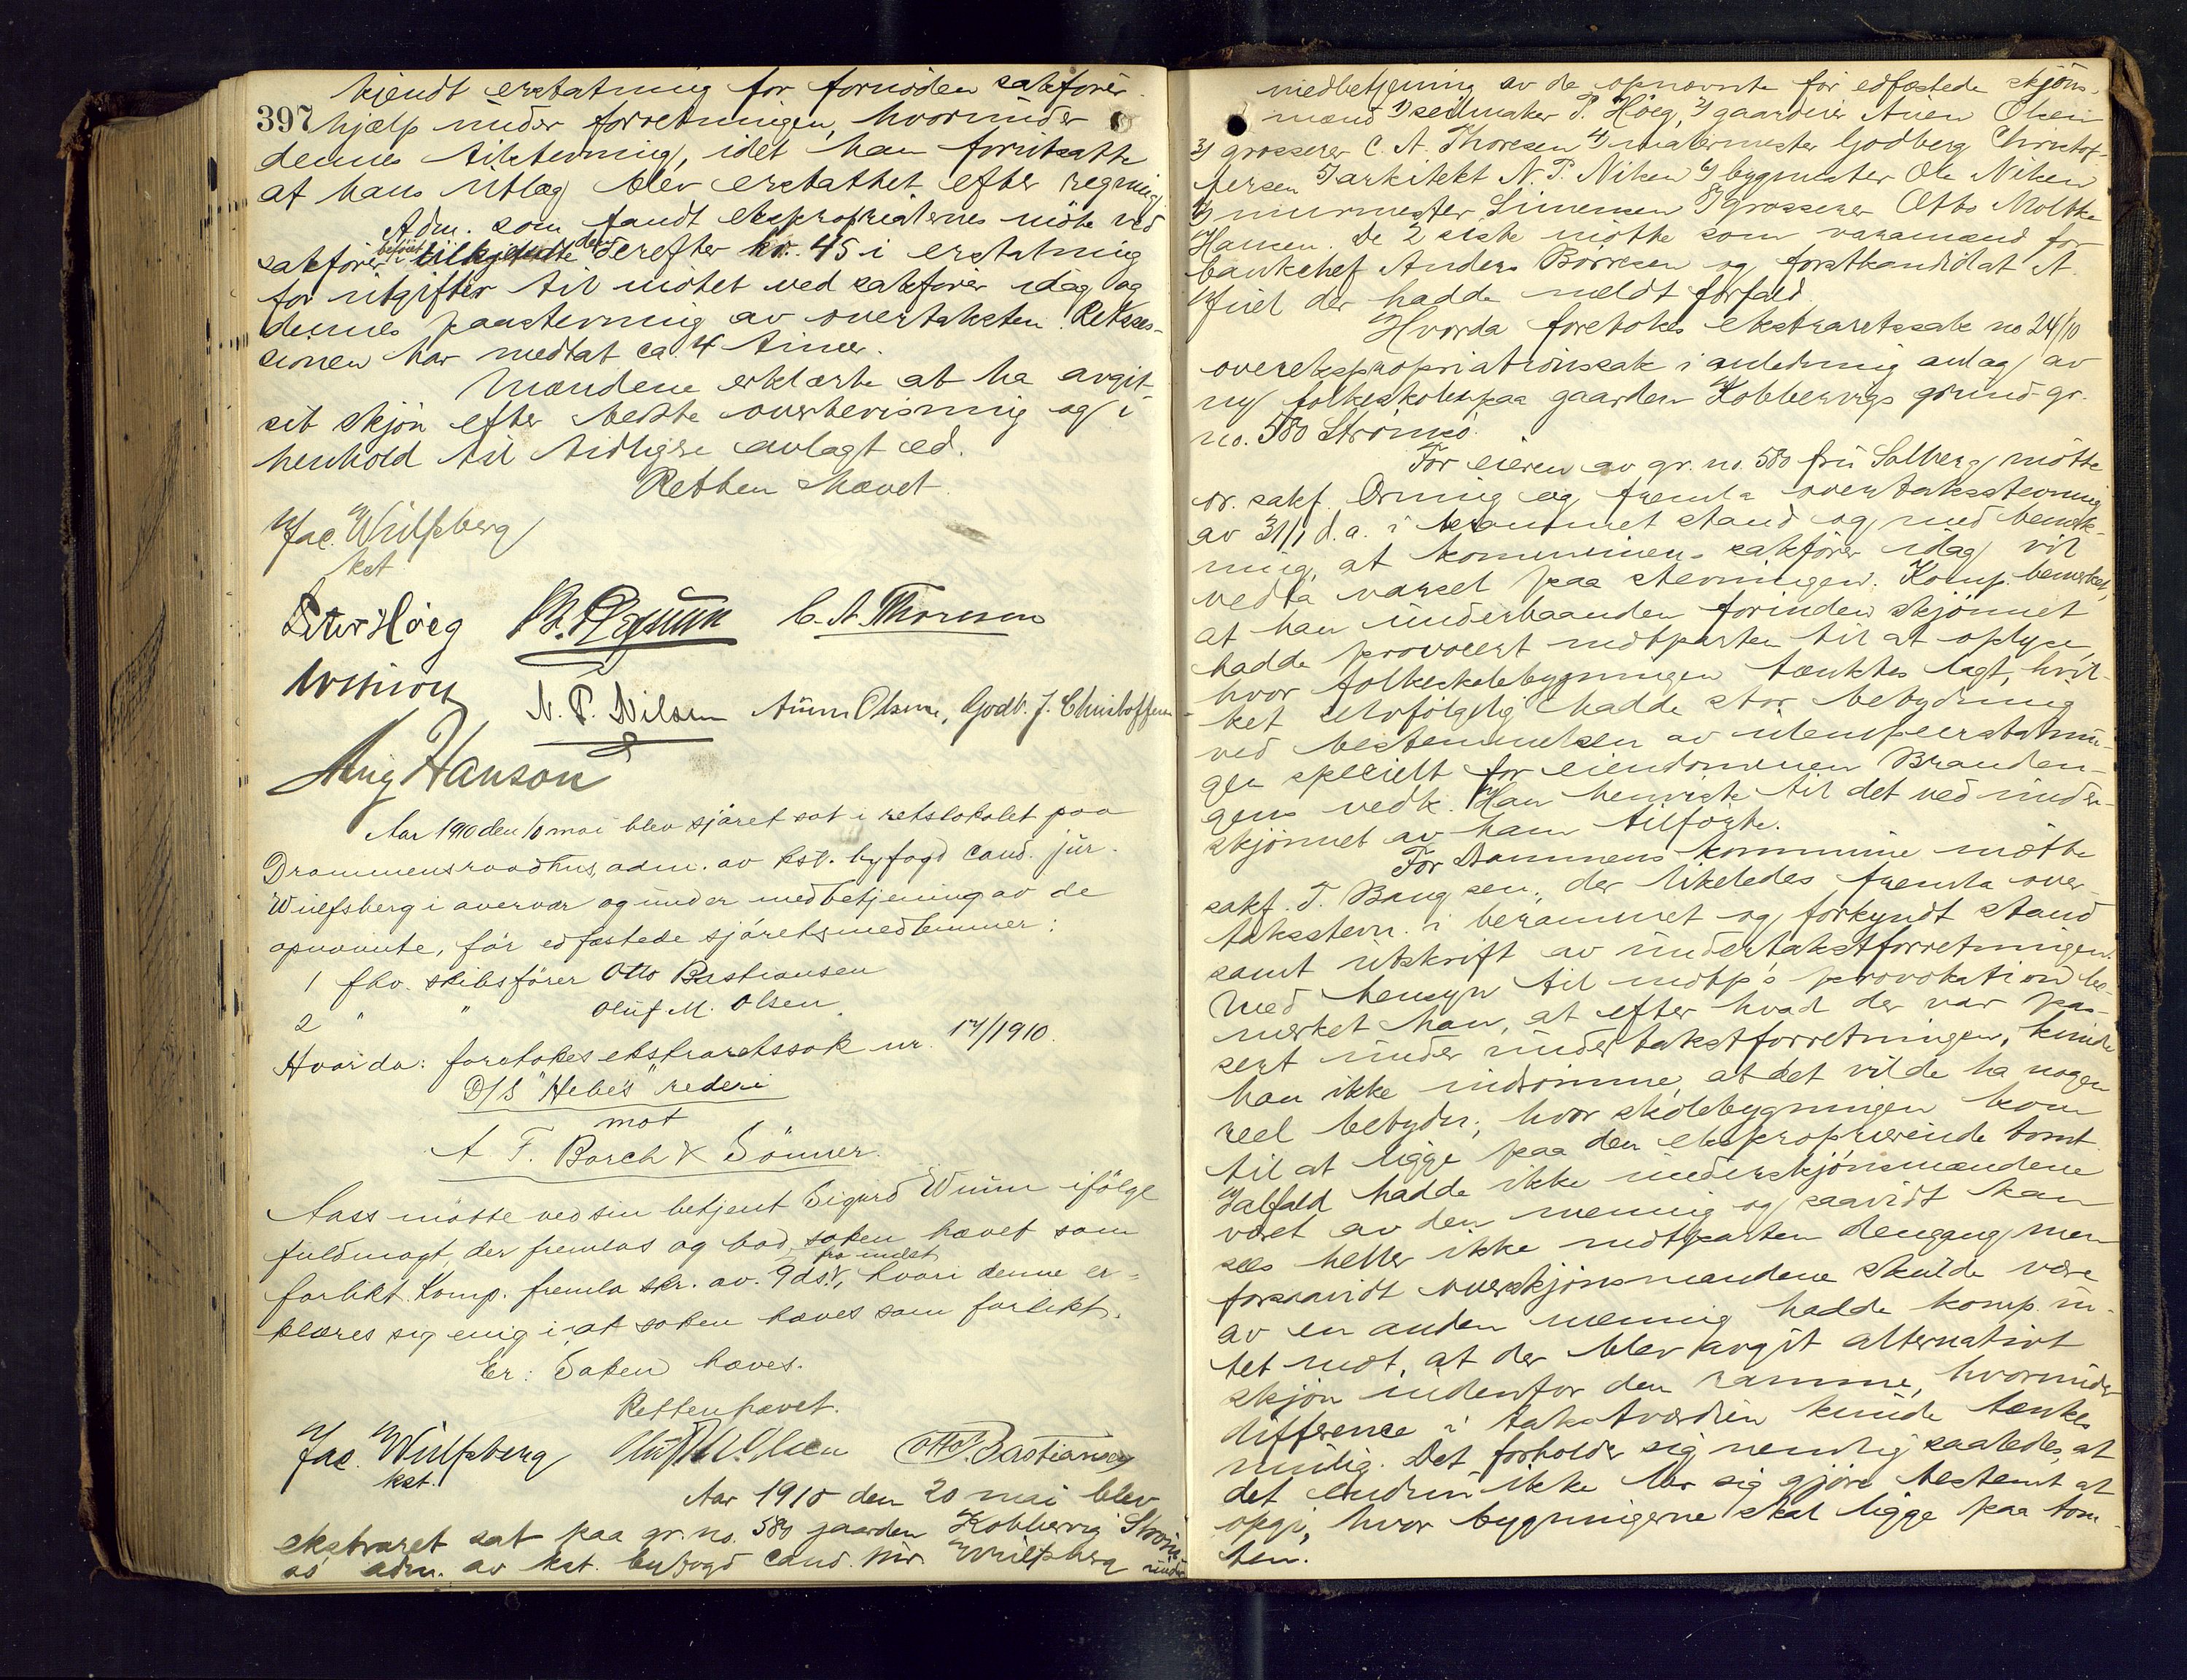 kjendt erstatning for fornöden sakförer-
397 hjælp under forretningen, hvorunder
dennes tilstevning, idet han forutsatte
at hans utlæg blev erstattet efter regning.
Adm. som fandt ekspropriaternes möte ved
sakförer beföiet tilkjendte dem derefter kr. 45 i erstatning
for utgifter til mötet ved sakförer idag og
dennes paastevning av overtaksten. Retsses-
sionen har medtat ca. 4 timer.
Mændene erklærte at ha avgit
sit skjön efter bedste overbevisning og i
henhold til tidligere avlagt ed.
Retten hævet.
Jac. Wülfsberg
kst.
Peter Höeg C. A. Thoresen
N. P. Nilsen Anen Olsen, Godb. J. Christoffersen
Aug Hanson
Aar 1910 den 10 mai blev sjöret sat i retslokalet paa
Drammens raadhus, adm. av kst. byfogd cand. jur.
Wülfsberg i overvær og under medbetjening av de
opnævnte, för edfæstede sjöretsmedlemmer:
1 fhv. skibsförer Otto Bastiansen
2 " " Oluf M. Olsen.
Hvorda: foretokes ekstraretssak nr. 17/1910.
D/S "Hebe's" rederi
mot
A. F. Borch & Sönner.
Aass mötte ved sin betjent Sigurd Wiim ifölge
fuldmagt, der fremlas og bad saken hævet som
forlikt. Komp. fremla skr. av. 9 ds. fra indst., hvori denne er-
klæres sig enig i, at saken hæves som forlikt.
Er: Saken hæves.
Retten hævet.
Jac. Wülfsberg Oluf M. Olsen Otto Bastiansen
kst.
Aar 1910 den 20 mai blev
ekstraret sat paa gr. no. 580 gaarden Kobbervig Ströms-
ö adm. av kst. byfogd cand. jur. Wülfsberg under
medbetjening av de opnævnte för edfæstede skjöns-
mænd 1) seilmaker P. Höeg, 2) gaardeier Anen Olsen
3) grosserer C. A. Thoresen 4) malermester Godberg Christof-
fersen 5) arkitekt N. P. Nilsen 6) bygmester Ole Nilsen
7) murmester Simensen 8) grosserer Otto Moltke
Hansen. De 2 siste mötte som varamænd for
bankchef Anders Börresen og forstkandidat A.
Juel der hadde meldt forfald.
Hvorda foretokes ekstraretssak no 24/10
overekspropriationssak i anledning anlæg av
ny folkeskole paa gaarden Kobbervigs grund gr.
no. 580 Strömsö.
For eieren av gr. no. 580 fru Solberg mötte
or. sakf. Orning og fremla overtaksstevning
av 31/1 d.a. i berammet stand og med bemerk-
ning, at kommunens sakförer idag vil
vedta varsel paa stevningen. Komp. bemerket,
at han underhaanden forinden skjönnet
hadde provocert motparten til at oplyse,
hvor folkeskolebygningen tænktes lagt, hvil-
ket selvfölgelig hadde stor betydning
ved bestemmelsen av ulempeerstatnin-
gen specielt for eiendommen Branden-
gens vedk. Han henviste til det ved under-
skjönnet av ham tilförte.
For Drammens kommune mötte
sakf. T. Bang sen., der likeledes fremla over-
taksstevn. i berammet og forkyndt stand
samt utskrift av undertakstforretningen.
Med hensyn til motp's provokation be-
merket han, at efter hvad der var pas-
sert under undertakstforretningen, kunde
han ikke indrömme, at det vilde ha nogen
reel betydn., hvor skolebygningen kom
til at ligge paa den eksproprierende tomt.
Ialfald hadde ikke underskjönsmændene
været av den mening og saavidt kan
sees heller ikke motparten dengang, men
forsaavidt overskjönsmændene skulde være
av en anden mening hadde komp. in-
tet mot, at der blev avgit alternativt
skjön indenfor den ramme, hvorunder
difference i takstværdien kunde tænkes
mulig. Det forholder sig nemlig saaledes, at
det endnu ikke lar sig gjöre bestemt at
opgi, hvor bygningerne skal ligge paa tom-
ten.